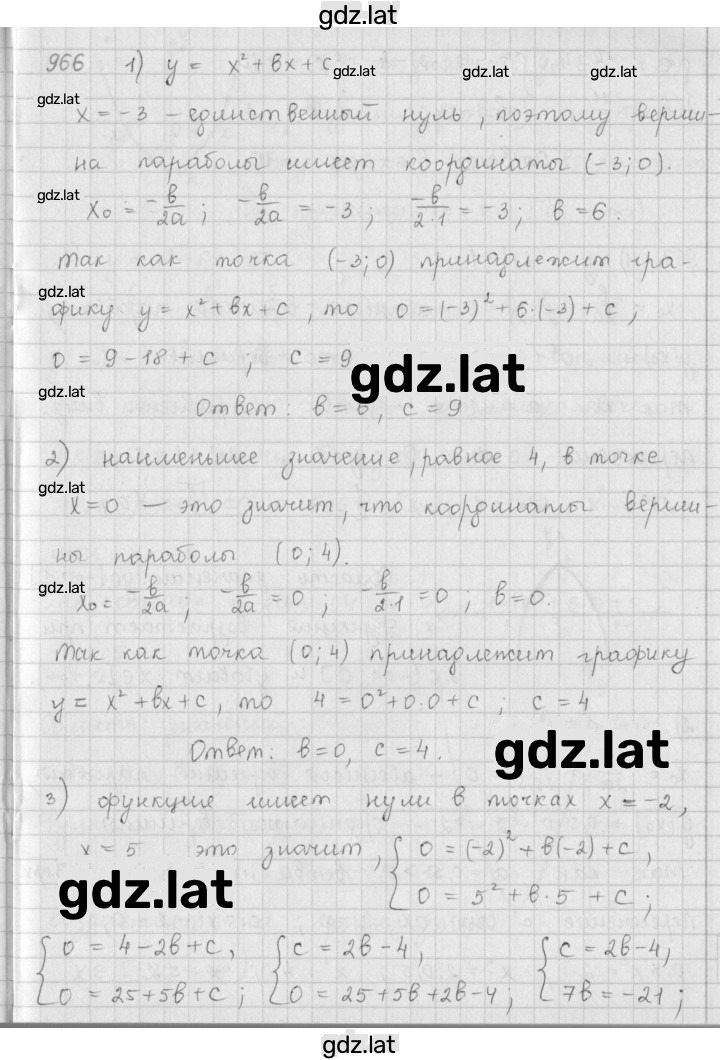 gdz.lat
966 1) y = x² + bx + c
gdz.lat gdz.lat gdz.lat
gdz.lat
x = -3 - единственный нуль, поэтому верши-
на параболы имеет координаты (-3; 0).
gdz.lat
x₀ = -b/2a ; -b/2a = -3 ; -b/2·1 = -3 ; b = 6.
так как точка (-3; 0) принадлежит гра-
gdz.lat
фику y = x² + bx + c, то 0 = (-3)² + 6·(-3) + c ;
0 = 9 - 18 + c ; c = 9
gdz.lat
gdz.lat
Ответ: b = 6, c = 9
2) наименьшее значение, равное 4, в точке
gdz.lat
x = 0 — это значит, что координаты верши-
ны параболы (0; 4).
gdz.lat
x₀ = -b/2a ; -b/2a = 0 ; -b/2·1 = 0 ; b = 0.
так как точка (0; 4) принадлежит графику
y = x² + bx + c, то 4 = 0² + 0·0 + c ; c = 4
Ответ: b = 0, c = 4.
gdz.lat
3) функция имеет нули в точках x = -2,
x = 5 это значит, { 0 = (-2)² + b(-2) + c,
0 = 5² + b·5 + c ;
gdz.lat
{ 0 = 4 - 2b + c, { c = 2b - 4, { c = 2b - 4,
0 = 25 + 5b + c ; 0 = 25 + 5b + 2b - 4 ; 7b = -21 ;
gdz.lat